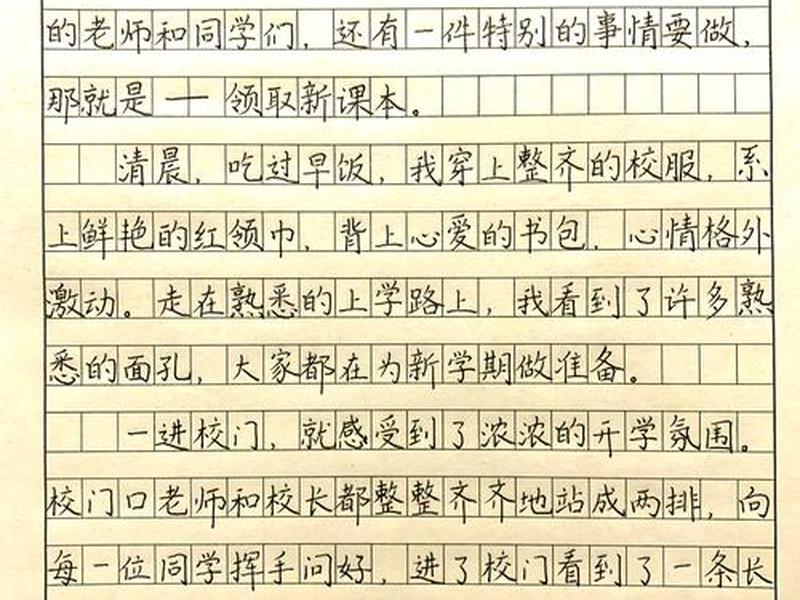 的老师和同学们，还有一件特别的事情要做，
那就是——领取新课本。
清晨，吃过早饭，我穿上整齐的校服，系
上鲜艳的红领巾，背上心爱的书包，心情格外
激动。走在熟悉的上学路上，我看到了许多熟
悉的面孔，大家都在为新学期做准备。
一进校门，就感受到了浓浓的开学氛围。
校门口老师和校长都整整齐齐地站成两排，向
每一位同学挥手问好，进了校门看到了一条长